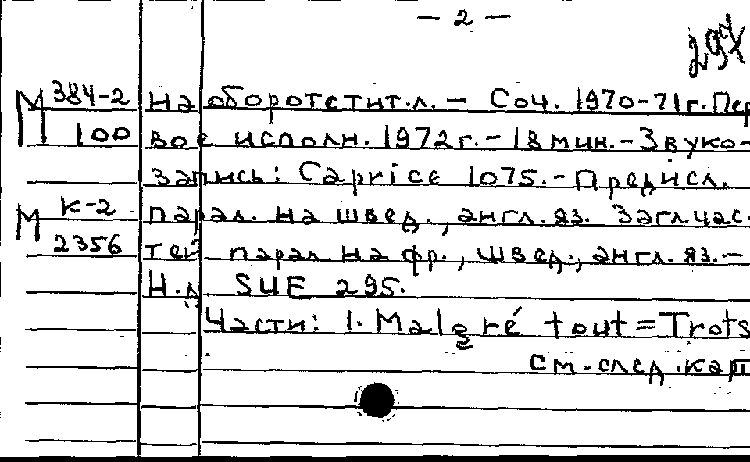 — 2 —
297
М 384-2 На оборотe тит.л. — Соч. 1970-71г. Пер
100 вое исполн. 1972г. — 18 мин. — Звуко-
запись: Caprice 1075. — Предисл.
М К-2 парал. на швед., англ. яз. Загл. час-
2356 тей парал на фр., швед., англ. яз. —
Н.д SUE 295.
Части: 1. Malgré tout = Trots
См. след. карт